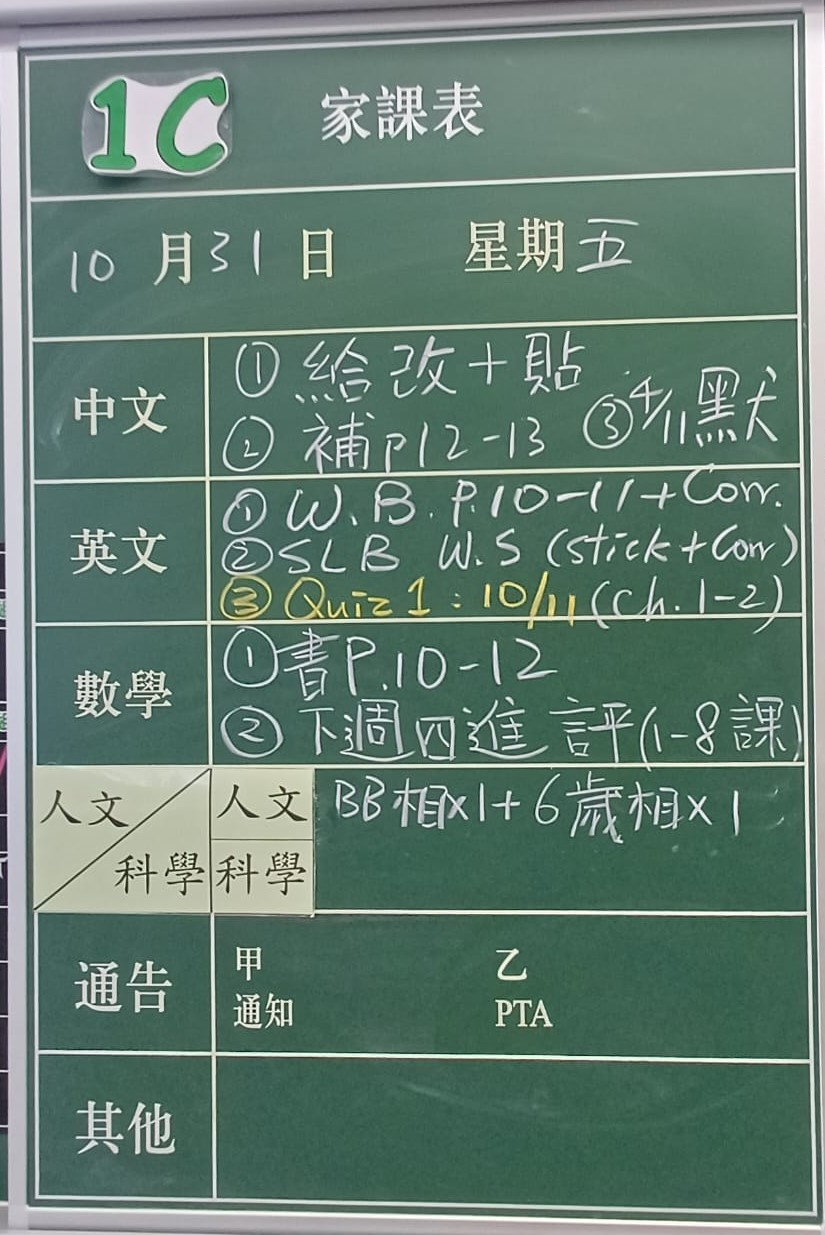 1C 家課表
10 月 31 日 星期五
中文
① 給改+貼
② 補P12-13 ③ 4/11默
英文
① W.B. P.10-11+Corr.
② SLB W.S (Stick+Corr)
③ Quiz 1 : 10/11 (Ch. 1-2)
數學
① 書P.10-12
② 下週四進評(1-8課)
人文/科學
人文 BB相x1+6歲相x1
科學
通告
甲 乙
通知 PTA
其他